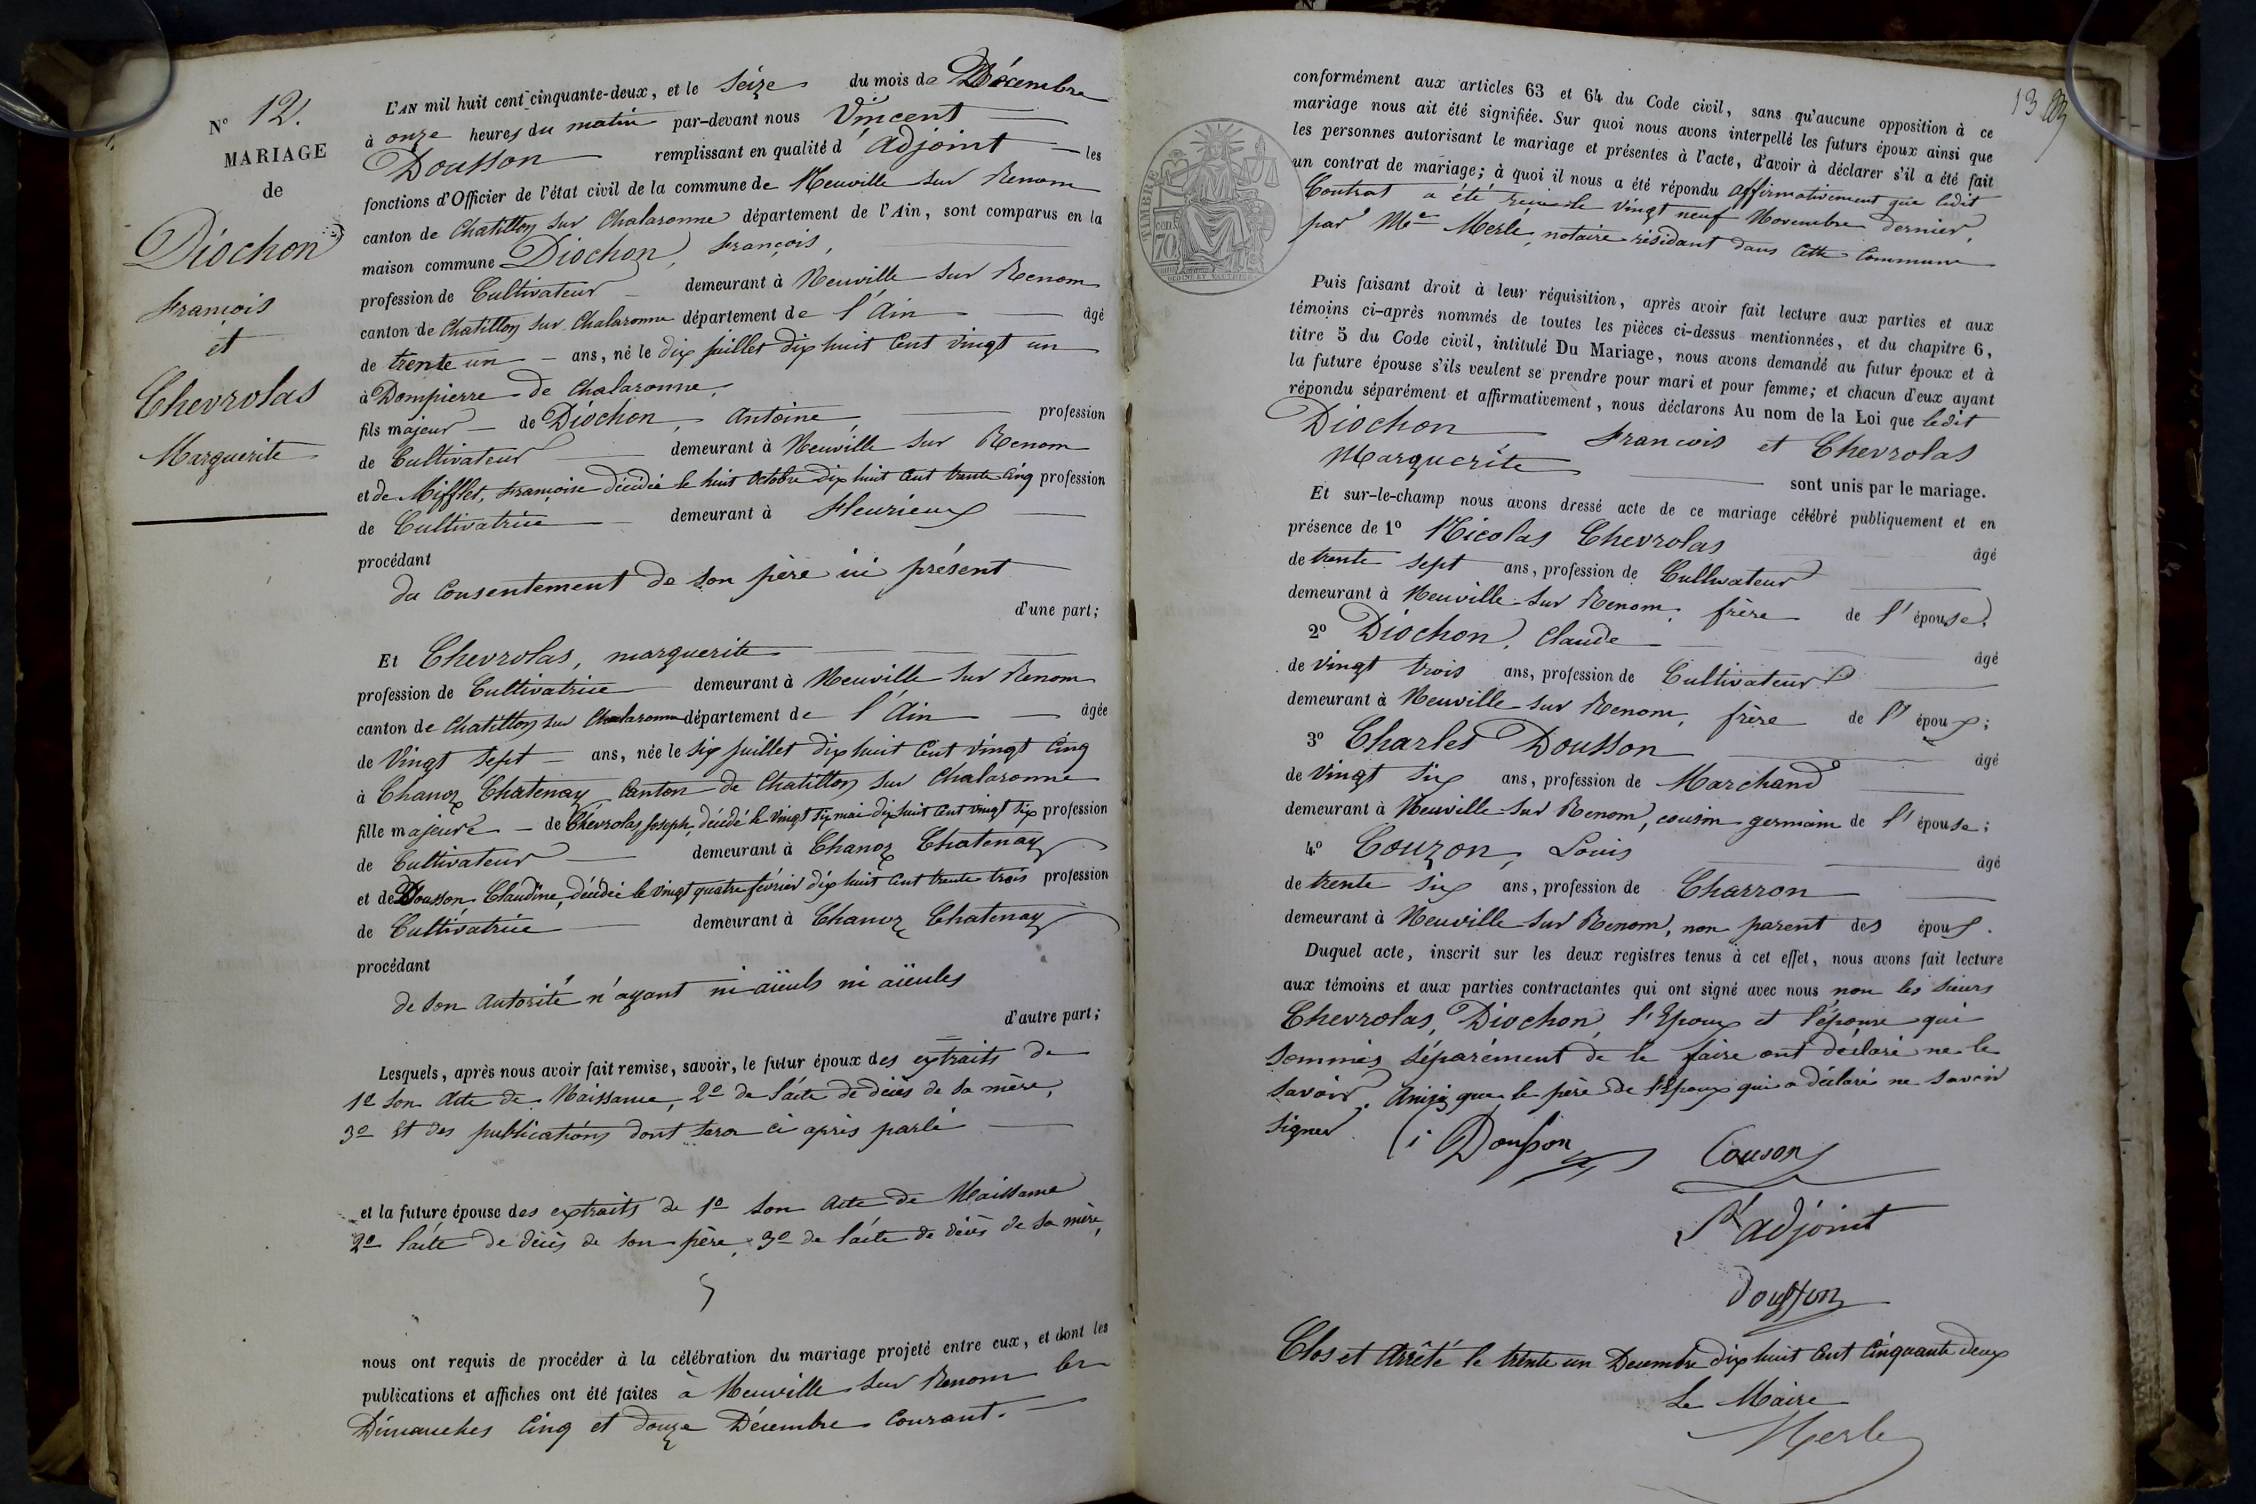 N° 12.
MARIAGE
de
Diochon
François
et
Chevrolas
Marguerite
L'AN mil huit cent cinquante-deux, et le Seize du mois de Décembre
à onze heures du matin par-devant nous Vincent
Dousson remplissant en qualité d'Adjoint les
fonctions d'Officier de l'état civil de la commune de Neuville sur Renom
canton de Chatillon sur Chalaronne département de l'Ain, sont comparus en la
maison commune Diochon, François,
profession de Cultivateur demeurant à Neuville sur Renom
canton de Chatillon sur Chalaronne département de l'Ain âgé
de trente un ans, né le dix juillet dix huit cent vingt un
à Dompierre de Chalaronne,
fils majeur de Diochon, Antoine, profession
de Cultivateur demeurant à Neuville sur Renom
et de Mifflet, françoise décédée le huit octobre dix huit cent trente cinq profession
de Cultivatrice demeurant à fleurieux
procédant
du consentement de son père ici présent
d'une part;
Et Chevrolas, marguerite
profession de Cultivatrice demeurant à Neuville sur Renom
canton de Chatillon sur Chalaronne département de l'Ain âgée
de Vingt sept ans, née le six juillet dix huit cent vingt cinq
à Chanoz Chatenay Canton de Chatillon sur Chalaronne
fille majeure de Chevrolas Joseph, décédé le vingt six mai dix huit cent vingt six profession
de Cultivateur demeurant à Chanoz Chatenay
et de Dousson, Claudine, décédée le vingt quatre février dix huit cent trente trois profession
de Cultivatrice demeurant à Chanoz Chatenay
procédant
de son autorité n'ayant ni aïeuls ni aïeules
d'autre part;
Lesquels, après nous avoir fait remise, savoir, le futur époux des extraits de
1° son acte de Naissance, 2° de l'acte de décès de sa mère,
3° et des publications dont sera ci après parlé
et la future épouse des extraits de 1° son acte de Naissance
2° l'acte de décès de son père, 3° de l'acte de décès de sa mère,
nous ont requis de procéder à la célébration du mariage projeté entre eux, et dont les
publications et affiches ont été faites à Neuville sur Renom les
Dimanches Cinq et douze Décembre Courant.
13
TIMBRE
70
conformément aux articles 63 et 64 du Code civil, sans qu'aucune opposition à ce
mariage nous ait été signifiée. Sur quoi nous avons interpellé les futurs époux ainsi que
les personnes autorisant le mariage et présentes à l'acte, d'avoir à déclarer s'il a été fait
un contrat de mariage; à quoi il nous a été répondu affirmativement que ledit
Contrat a été reçu le vingt neuf Novembre dernier,
par Me Merle, notaire résidant dans cette Commune
Puis faisant droit à leur réquisition, après avoir fait lecture aux parties et aux
témoins ci-après nommés de toutes les pièces ci-dessus mentionnées, et du chapitre 6,
titre 5 du Code civil, intitulé Du Mariage, nous avons demandé au futur époux et à
la future épouse s'ils veulent se prendre pour mari et pour femme; et chacun d'eux ayant
répondu séparément et affirmativement, nous déclarons Au nom de la Loi que ledit
Diochon François et Chevrolas
Marguerite sont unis par le mariage.
Et sur-le-champ nous avons dressé acte de ce mariage célébré publiquement et en
présence de 1° Nicolas Chevrolas âgé
de trente sept ans, profession de Cultivateur
demeurant à Neuville sur Renom, frère de l'épouse,
2° Diochon, Claude âgé
de vingt trois ans, profession de Cultivateur
demeurant à Neuville sur Renom, frère de l'époux;
3° Charles Dousson âgé
de vingt six ans, profession de Marchand
demeurant à Neuville sur Renom, cousin germain de l'épouse;
4° Couzon, Louis âgé
de trente six ans, profession de Charron
demeurant à Neuville sur Renom, non parent des époux.
Duquel acte, inscrit sur les deux registres tenus à cet effet, nous avons fait lecture
aux témoins et aux parties contractantes qui ont signé avec nous non les sieurs
Chevrolas, Diochon, l'Epoux et l'épouse qui
sommés séparément de le faire ont déclaré ne le
savoir. Ainsi que le père de l'Epoux qui a déclaré ne savoir
signer.
Dousson Couson
L'adjoint
Dousson
Clos et arrêté le trente un Decembre dix huit cent Cinquante deux
Le Maire
Merle